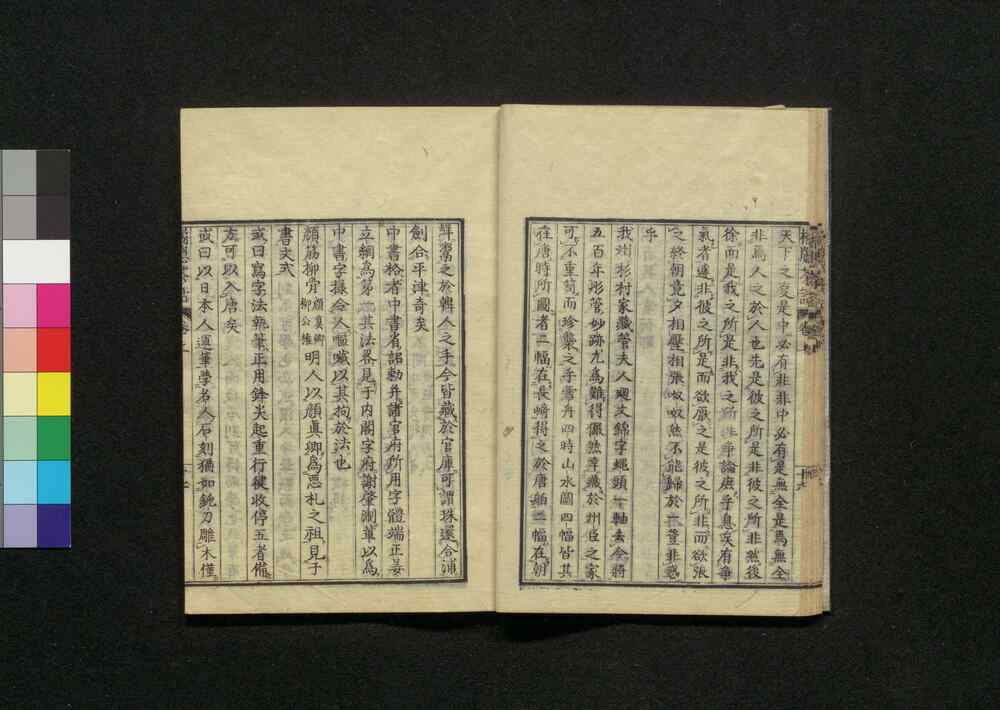 天下之交是中必有非非中必有是無全是焉無全
非焉人之於人也先是彼之所是非彼之所非然後
徐而是我之所是非我之所非爭論庶乎息矣有爭
氣者遽非彼之所是而欲屈之是彼之所非而欲張
之終朝竟夕相壓相張呶呶然不能歸於一
乎
我州杉村家藏管夫人廻文錦字蠅頭一軸去今將
五百年彤管妙跡尤爲難得儼然韋藏於州臣之家
可不重荷而珍襲之乎雪舟四時山水圖四幅皆其
在唐時所圖者二幅在長崎得之於唐舶二幅在朝
鮮鬻之於韓人之手今皆藏於官庫可謂珠還合浦
劍合平津奇矣
中書格者中書省詔勅幷諸官府所用字體端正姜
立綱爲第一其法畧見于内閣字府謝肇淛輩以爲
中書字操令人嘔噦以其拘於法也
顔筋柳骨顔眞卿柳公權明人以顔眞卿爲惡札之祖見于
書文式
或曰寫字法執筆正用鋒尖起重行徤收停五者備
方可以入唐矣
或曰以日本人運筆學名人石刻猶如鈍刀雕木僅